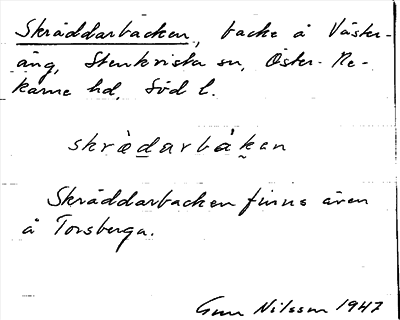 Skräddarbacken, backe å Väster-
äng, Stenkvista sn, Öster-Re-
karne hd, Södl.
skrädarbákan
Skräddarbacken finns även
å Torsberga.
Gun Nilsson 1947